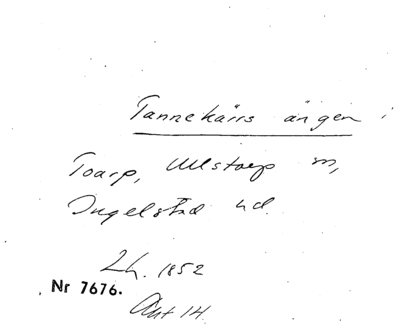 Tannekärrs ängen i
Toarp, Ullstorp sn,
Ingelstad hd.
Lh. 1852
Nr 7676.
Akt 14